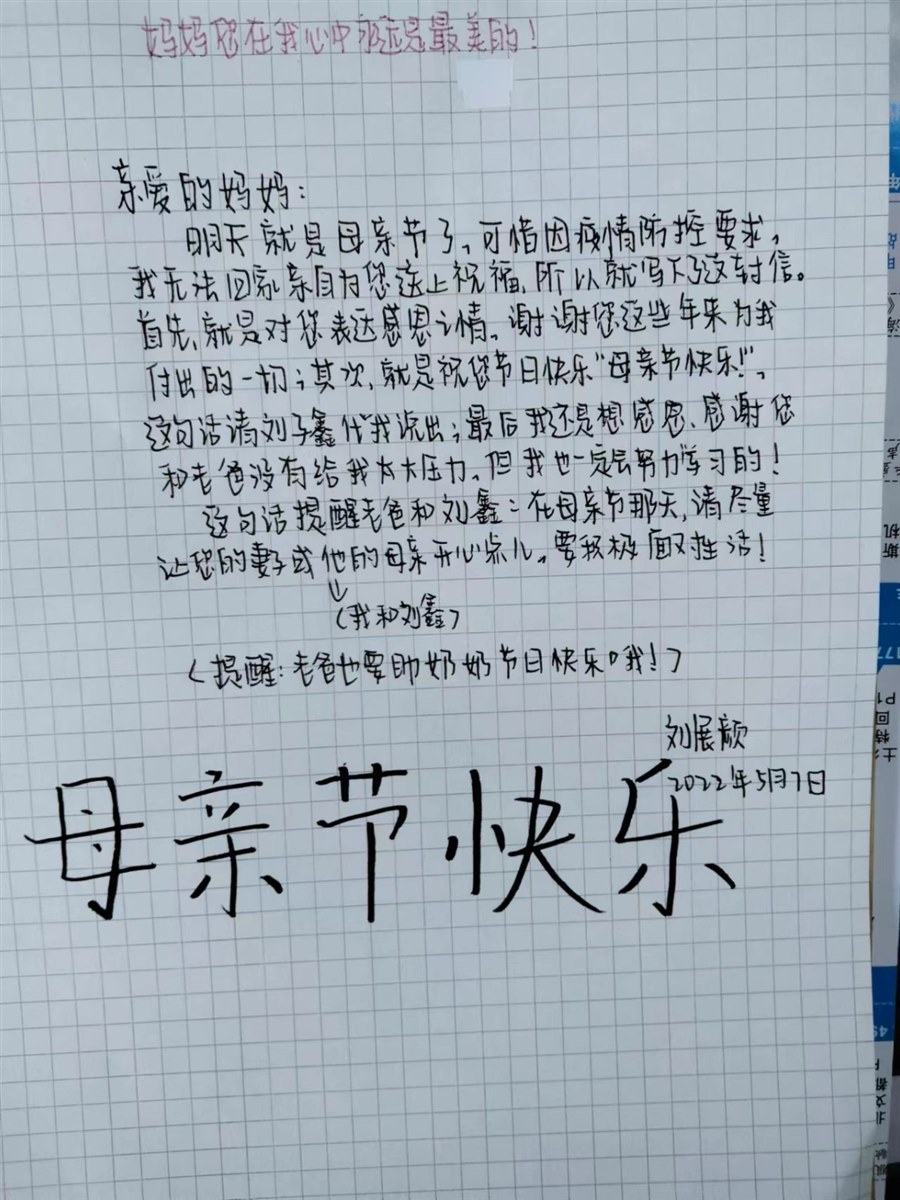 妈妈您在我心中永远是最美的！
亲爱的妈妈：
明天就是母亲节了，可惜因疫情防控要求，
我无法回家亲自为您送上祝福，所以就写下了这封信。
首先，就是对您表达感恩之情。谢谢您这些年来为我
付出的一切；其次，就是祝您节日快乐“母亲节快乐！”，
这句话请刘子鑫代我说出；最后我还是想感恩、感谢您
和老爸没有给我太大压力，但我也一定会努力学习的！
这句话提醒老爸和刘鑫：在母亲节那天，请尽量
让您的妻子或他的母亲开心点儿。要积极面对生活！
（我和刘鑫）
（提醒：老爸也要助奶奶节日快乐哦！）
刘展颜
2022年5月7日
母亲节快乐